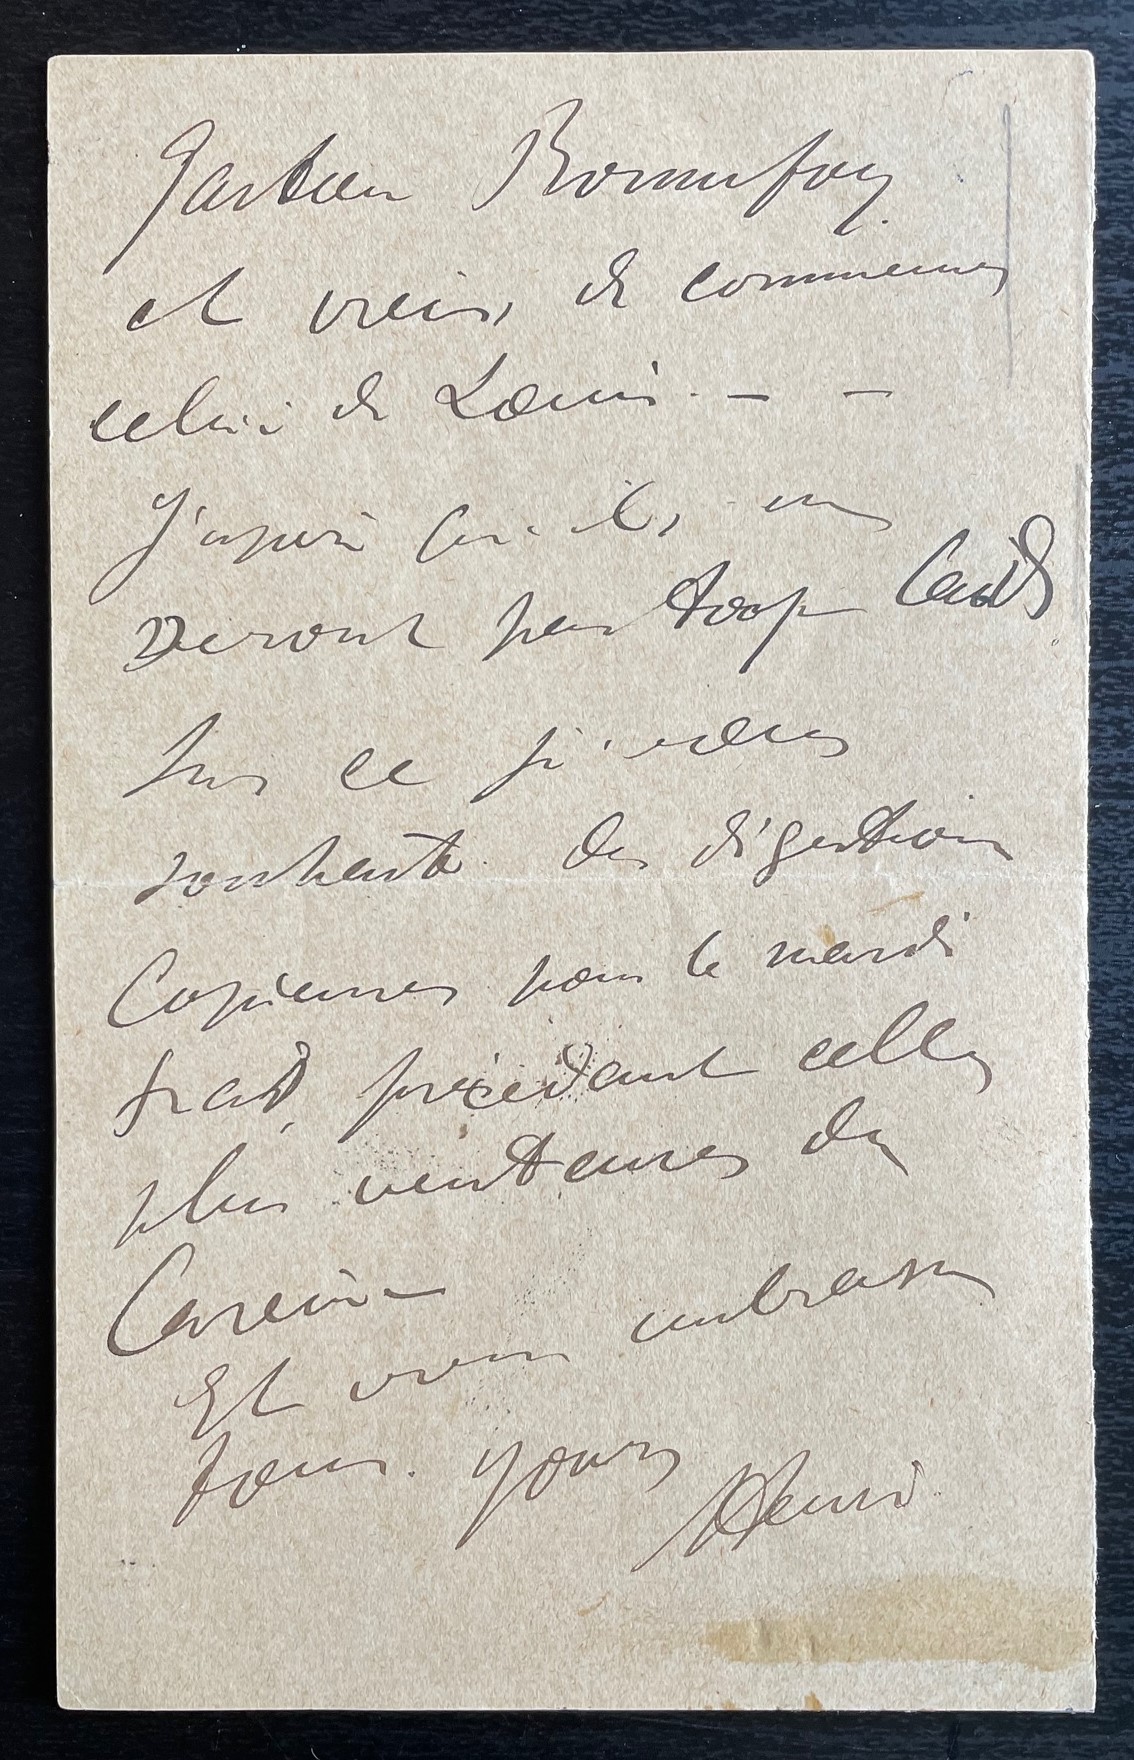 Gaston Bonnefoy
et viens de commencer
celui de Louis. — —
J'espère qu'ils ne
seront pas trop laids
Sur ce je vous
souhaite des digestions
Copieuses pour le mardi
gras précédant celles
plus venteuses du
Carême
Et vous embrasse
tous. yours
Henri